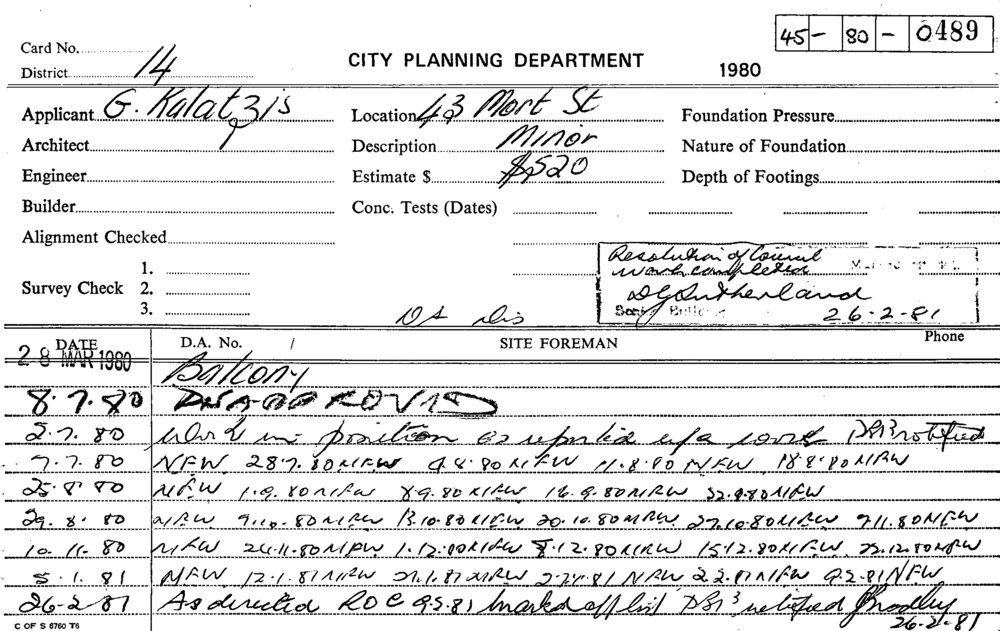 45 - 80 - 0489
Card No.
District 14
CITY PLANNING DEPARTMENT
1980
Applicant G. Kalatzis
Location 43 Mort St
Foundation Pressure
Architect
Description Minor
Nature of Foundation
Engineer
Estimate $ $520
Depth of Footings
Builder
Conc. Tests (Dates)
Alignment Checked
Resolution of Council
work completed
Survey Check
1.
2.
3.
D G Sutherland
26-2-81
DATE
D.A. No. /
SITE FOREMAN
Phone
28 MAR 1980
Balcony
8.7.80 DISAPPROVED
2.7.80 Work in position as reported
7.7.80 NFW 28.7.80 NFW 4.8.80 NFW 11.8.80 NFW 18.8.80 NFW
25.8.80 NFW 1.9.80 NFW 8.9.80 NFW 16.9.80 NFW 22.9.80 NFW
29.8.80 NFW 13.10.80 NFW 20.10.80 NFW 27.10.80 NFW
10.11.80 NFW 24.11.80 NFW 1.12.80 NFW 8.12.80 NFW 15.12.80 NFW 22.12.80 NFW
5.1.81 NFW 12.1.81 NFW NFW NFW 9.2.81 NFW
26-2-81 As directed ROC marked off list Bradley
26-2-81
C OF S 6760 T6